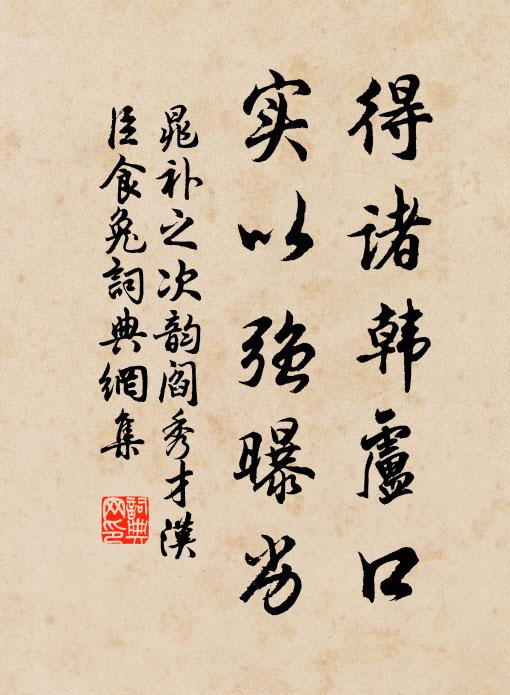 得诸韩卢口
实以强曝劣
晁补之次韵阎秀才汉
臣食兔词典网集
詞典
网印